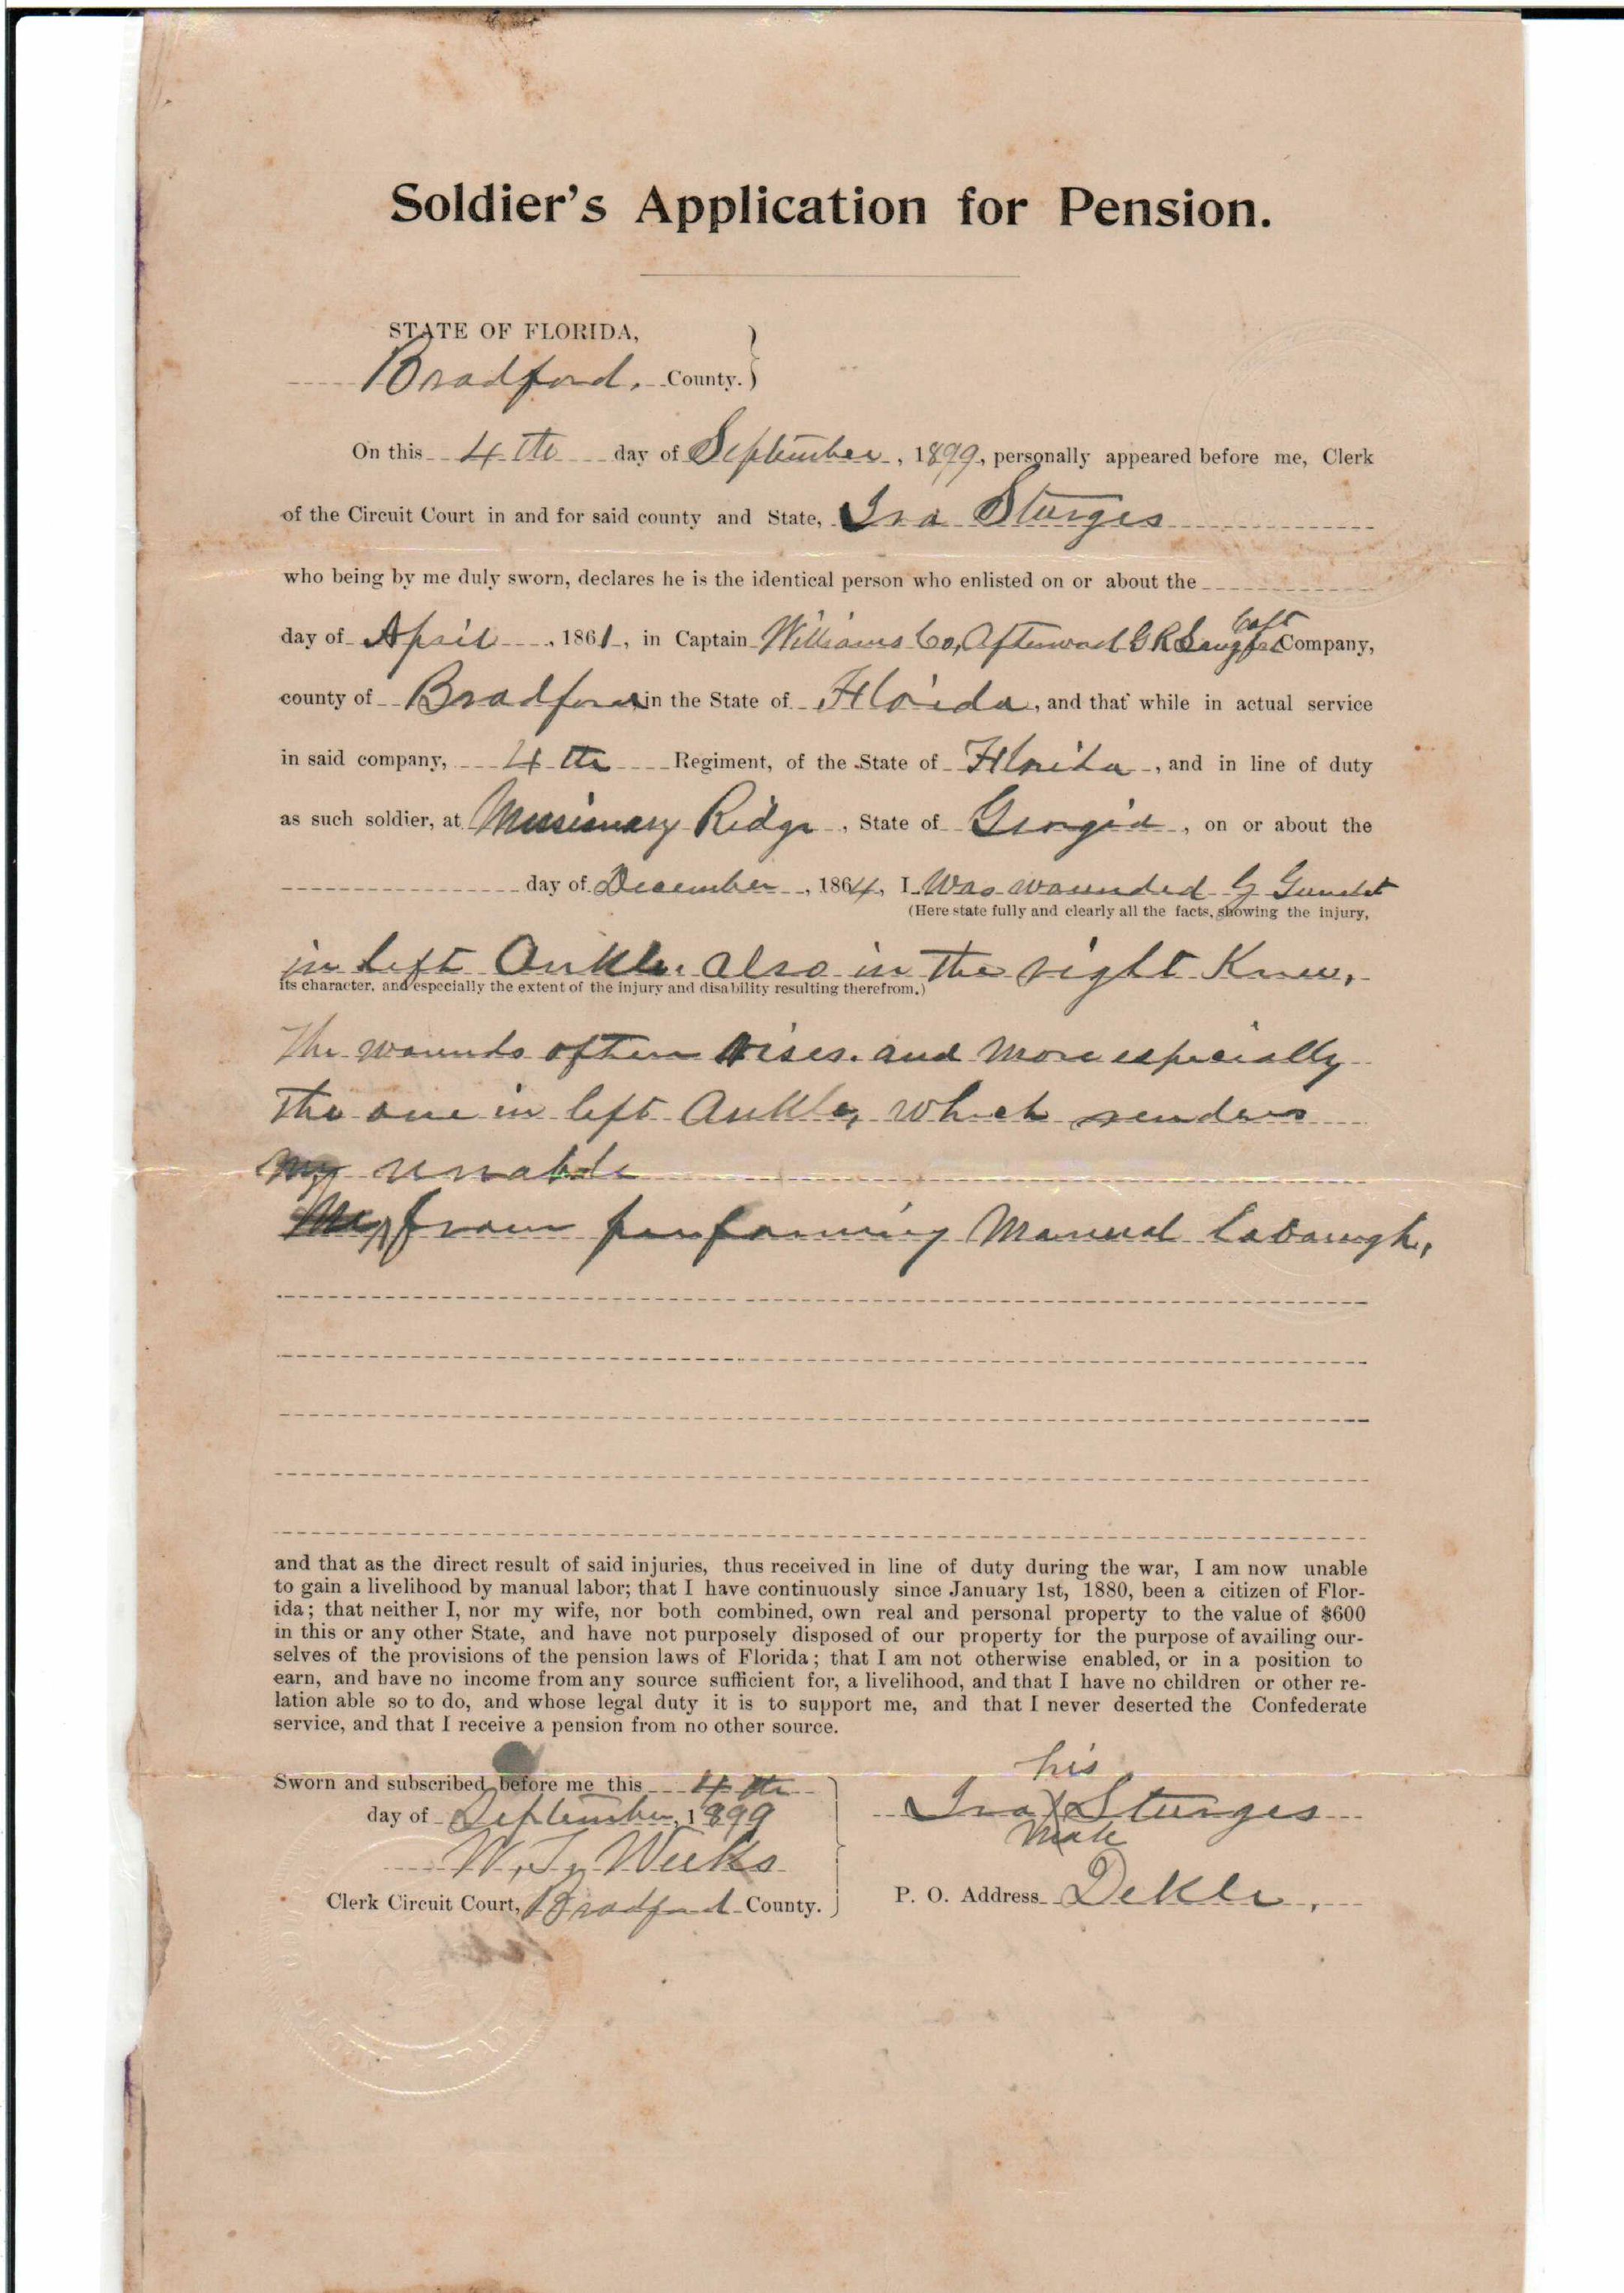 Soldier's Application for Pension.
STATE OF FLORIDA,
Bradford. County. }
On this 4th day of September, 1899, personally appeared before me, Clerk
of the Circuit Court in and for said county and State, Ira Sturges
who being by me duly sworn, declares he is the identical person who enlisted on or about the
Capt
day of April, 1861, in Captain Williams Co, Afterward G R Company,
county of Bradford in the State of Florida, and that while in actual service
in said company, 4th Regiment, of the State of Florida, and in line of duty
as such soldier, at Missionary Ridge, State of Georgia, on or about the
day of December, 1864, I Was wounded by Gunshot
(Here state fully and clearly all the facts, showing the injury,
in left Ankle. also in the right Knee,
its character, and especially the extent of the injury and disability resulting therefrom.)
The wounds often rises. and more especially
the one in left Ankle, which renders
my unable
from performing Manual labaugh,
and that as the direct result of said injuries, thus received in line of duty during the war, I am now unable
to gain a livelihood by manual labor; that I have continuously since January 1st, 1880, been a citizen of Flor-
ida; that neither I, nor my wife, nor both combined, own real and personal property to the value of $600
in this or any other State, and have not purposely disposed of our property for the purpose of availing our-
selves of the provisions of the pension laws of Florida; that I am not otherwise enabled, or in a position to
earn, and have no income from any source sufficient for, a livelihood, and that I have no children or other re-
lation able so to do, and whose legal duty it is to support me, and that I never deserted the Confederate
service, and that I receive a pension from no other source.
Sworn and subscribed before me this 4th
day of September, 1899
W. T. Weeks
Clerk Circuit Court, Bradford County. }
his
Ira X Sturges
Mark
P. O. Address Dekle,